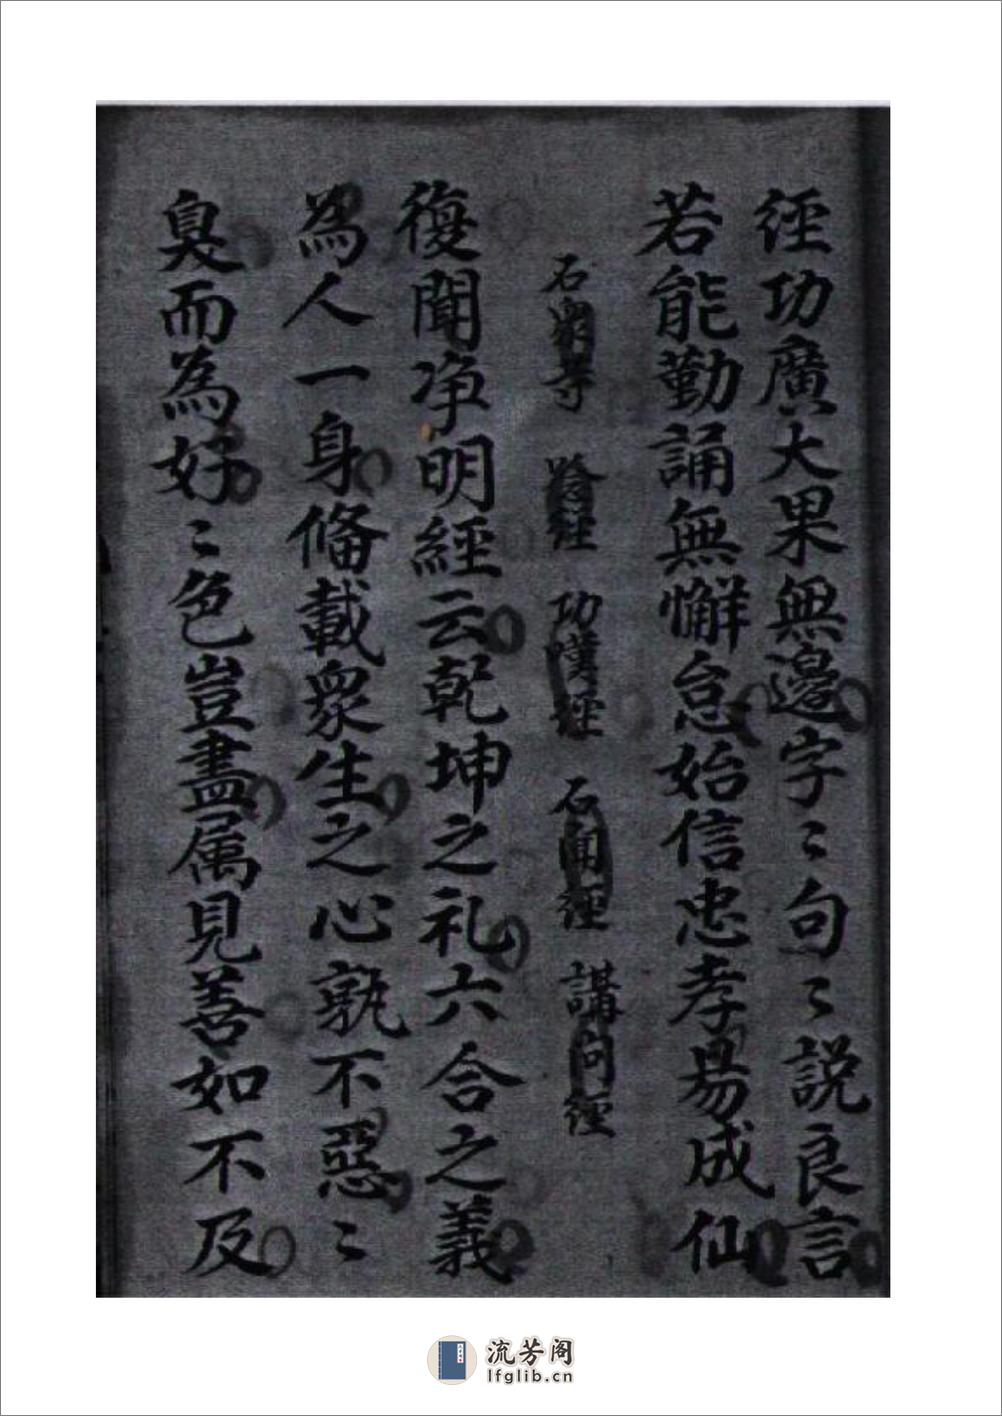 径功廣大果無邊字〻句〻說良言
若能勤誦無懈怠始信忠孝易成仙
石衆等 念經 功嘆經 石聞經 講向經
復聞净明經云乾坤之礼六合之義
為人一身俻載衆生之心孰不惡〻
臭而為好〻色豈盡属見善如不及
流芳阁
lfglib.cn